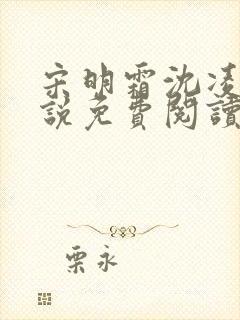 宋明霜沈凌
說免費閱讀
栗永